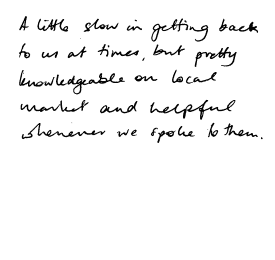 A little slow in getting back
to us at times, but pretty
knowledgeable on local
market and helpful
whenever we spoke to them.